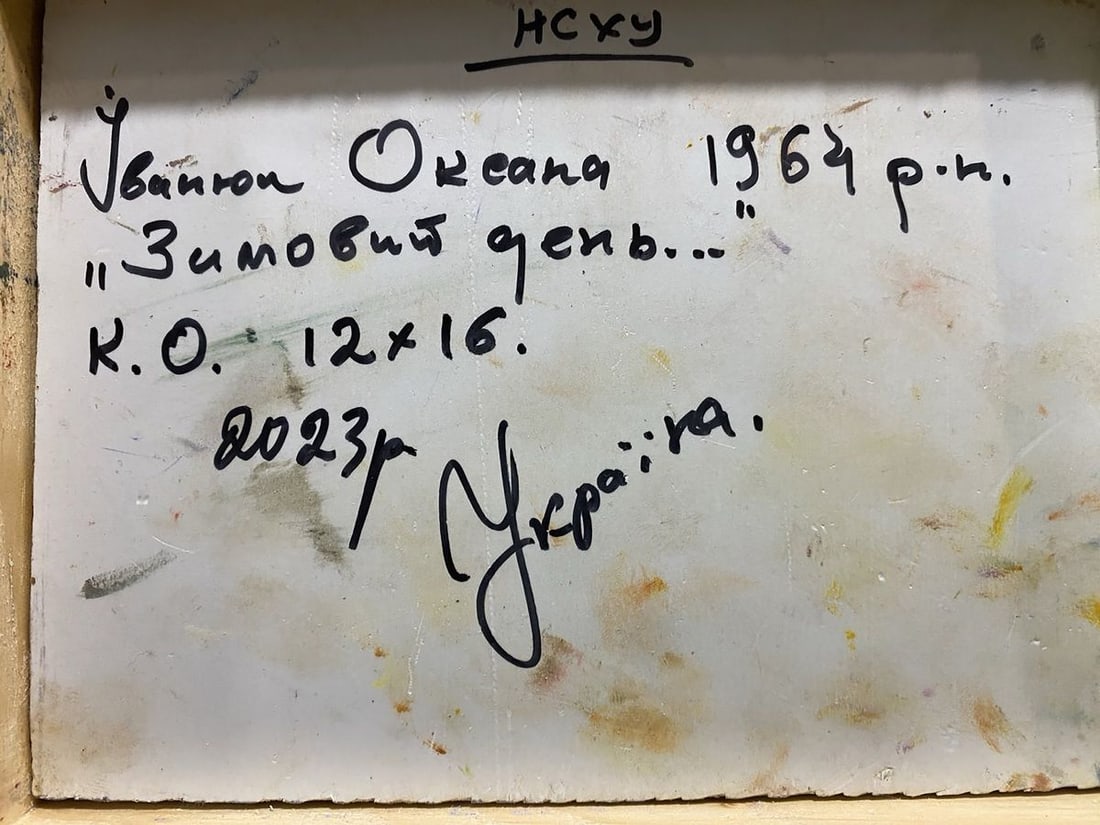 НСХУ
Іванюк Оксана 1964 р.н.
„Зимовий день..."
К.О. 12х16.
2023р
Україна.